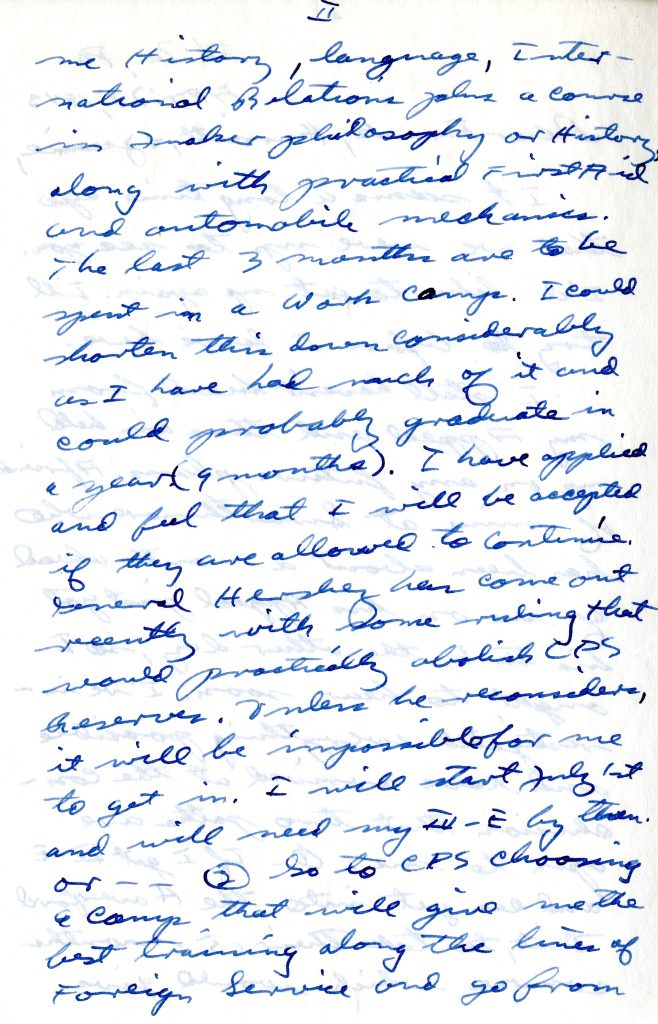 II
me History, language, Inter-
national Relations plus a course
in Quaker philosophy or History,
along with practical First Aid
and automobile mechanics.
The last 3 months are to be
spent in a work camp. I could
shorten this down considerably
as I have had much of it and
could probably graduate in
a year (9 months). I have applied
and feel that I will be accepted
if they are allowed to continue.
General Hershey has come out
recently with some ruling that
would practically abolish CPS
Reserves. Unless he reconsiders,
it will be impossible for me
to get in. I will start July 1st
and will need my III-E by then.
or — — ② Go to CPS choosing
a camp that will give me the
best training along the lines of
Foreign Service and go from